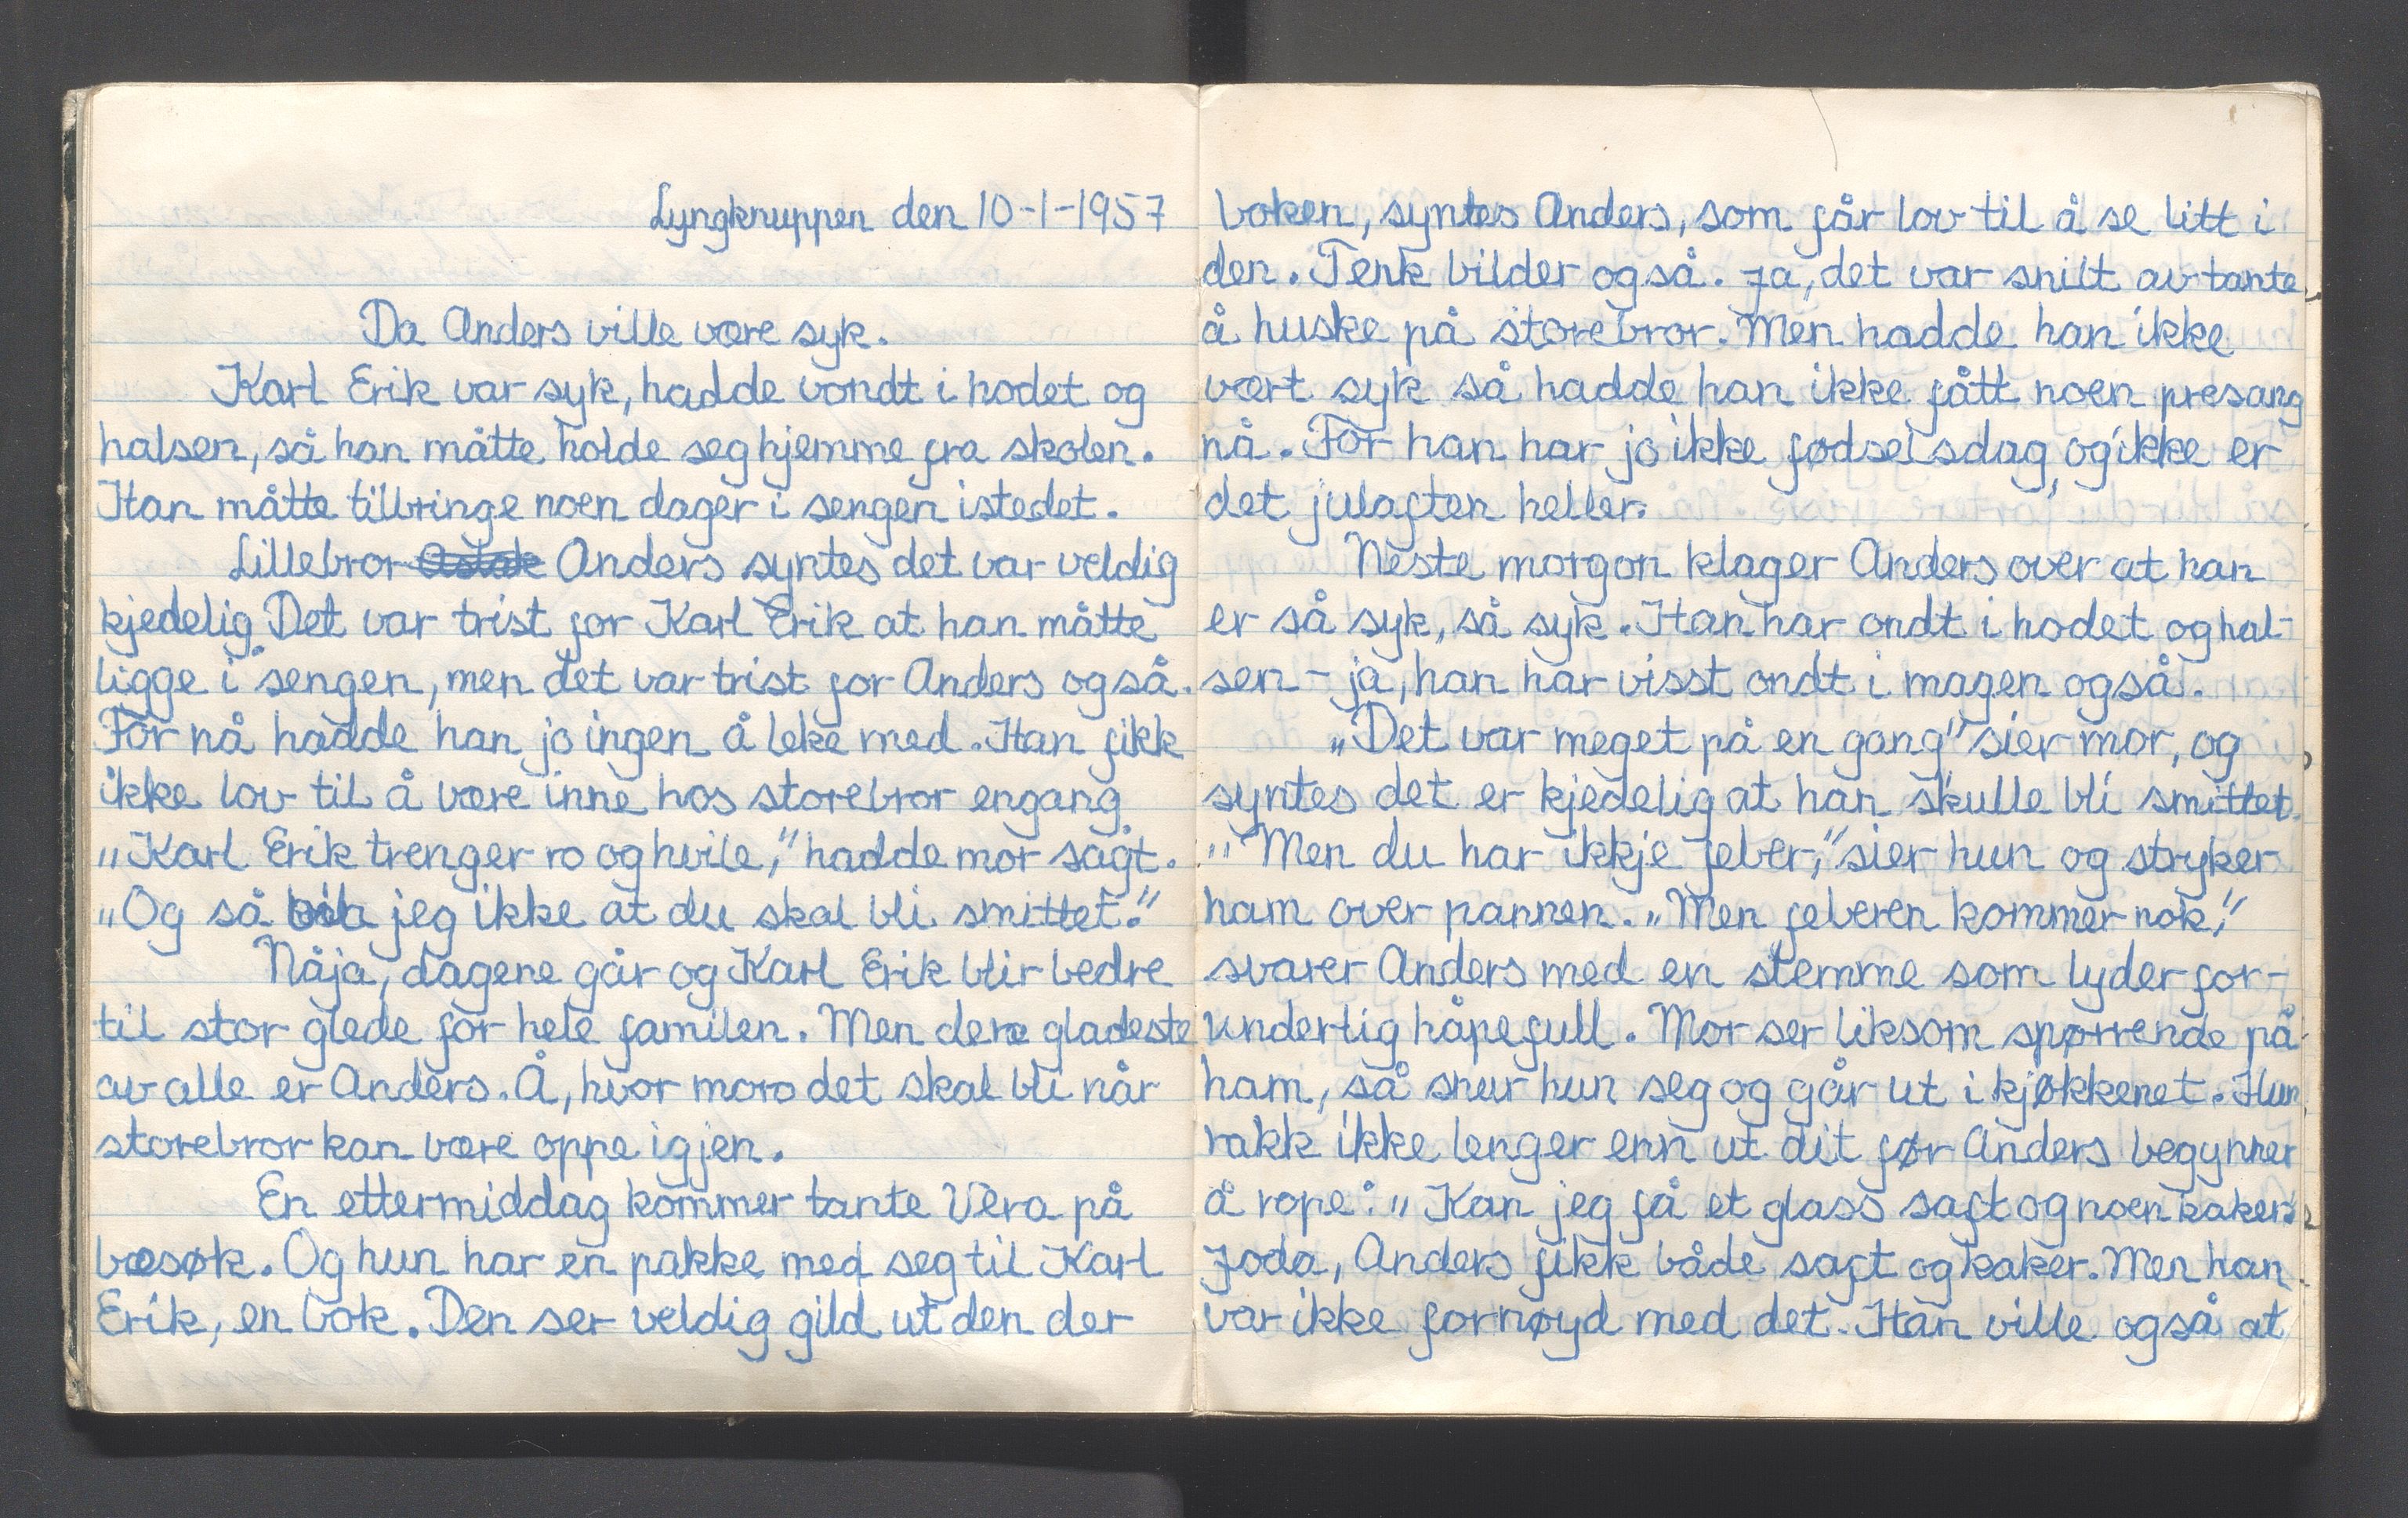 Lyngknuppen den 10-1-1957
Da Anders ville være syk.
Karl Erik var syk, hadde vondt i hodet og
halsen, så han måtte holde seg hjemme fra skolen.
Han måtte tilbringe noen dager i sengen istedet.
Lillebror Anders syntes det var veldig
kjedelig. Det var trist for Karl Erik at han måtte
ligge i sengen, men det var trist for Anders også.
For nå hadde han jo ingen å leke med. Han fikk
ikke lov til å være inne hos storebror engang.
„Karl Erik trenger ro og hvile," hadde mor sagt.
„Og så vil jeg ikke at du skal bli smittet."
Nåja, dagene går og Karl Erik blir bedre
til stor glede for hele familen. Men dere gladeste
av alle er Anders. Å, hvor moro det skal bli når
storebror kan være oppe igjen.
En ettermiddag kommer tante Vera på
besøk. Og hun har en pakke med seg til Karl
Erik, en bok. Den ser veldig gild ut den der
boken, syntes Anders, som får lov til å se litt i
den. Tenk bilder også. Ja, det var snilt av tante
å huske på storebror. Men hadde han ikke
vært syk så hadde han ikke fått noen presang
nå. For han har jo ikke fødselsdag, og ikke er
det julaften heller.
Neste morgon klager Anders over at han
er så syk, så syk. Han har ondt i hodet og hal-
sen - ja, han har visst ondt i magen også.
„Det var meget på en gang" sier mor, og
syntes det er kjedelig at han skulle bli smittet.
„Men du har ikkje feber," sier hun og stryker
ham over pannen. „Men feberen kommer nok,"
svarer Anders med en stemme som lyder for-
underlig håpefull. Mor ser liksom spørrende på
ham, så snur hun seg og går ut i kjøkkenet. Hun
rakk ikke lenger enn ut dit før Anders begynner
å rope: „Kan jeg få et glass saft og noen kaker"
Joda, Anders fikk både saft og kaker. Men han
var ikke fornøyd med det. Han ville også at